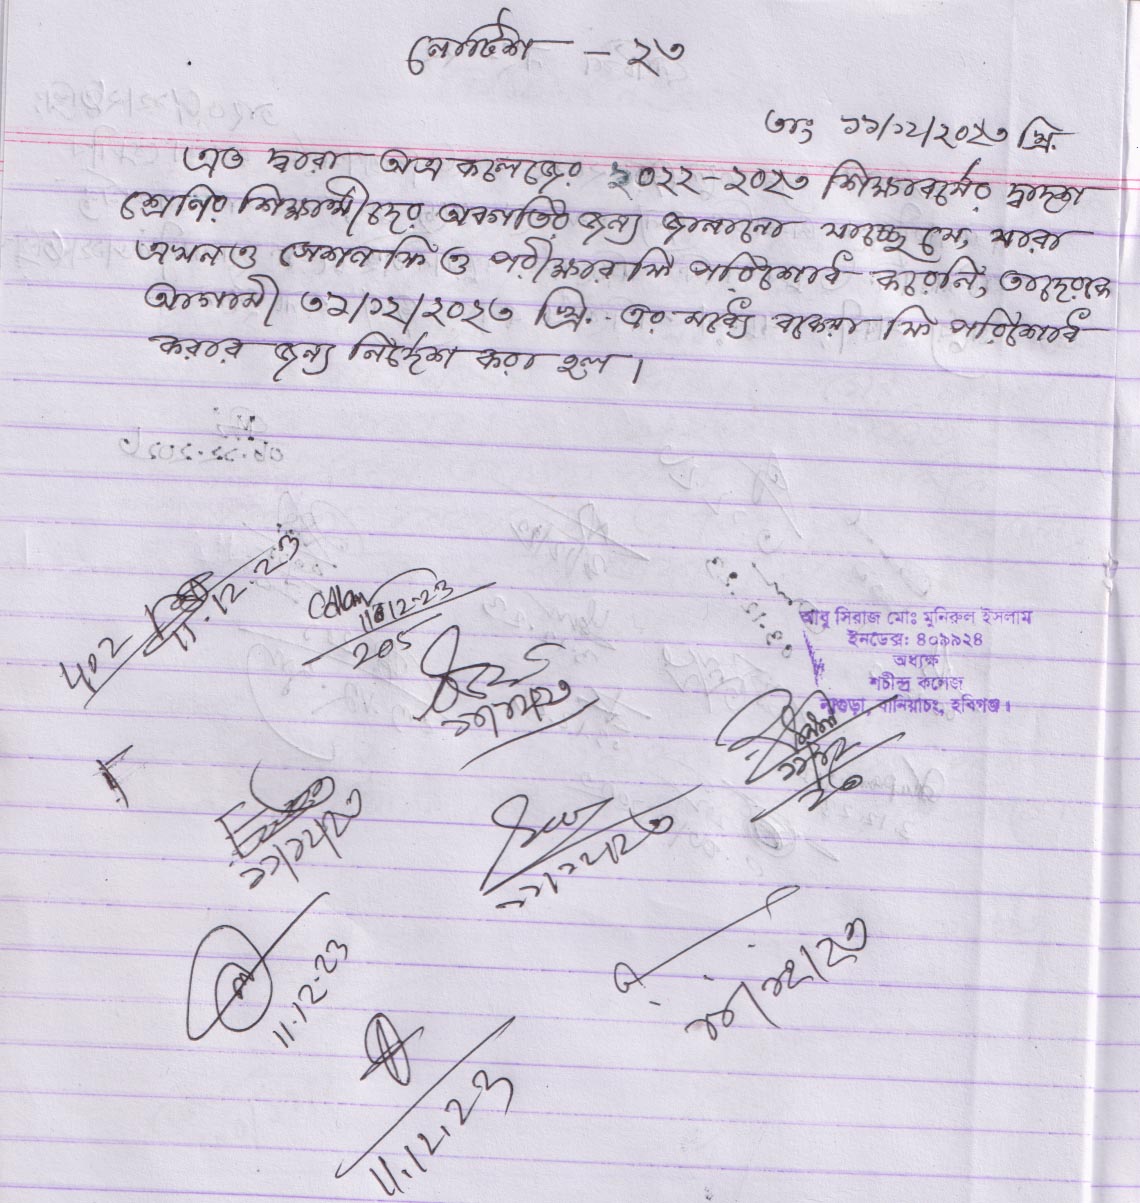 নোটিশ - ২৩
তাং ১১/১২/২০২৩ খ্রি.
এত দ্বারা অত্র কলেজের ২০২২-২০২৩ শিক্ষাবর্ষের দ্বাদশ
শ্রেণির শিক্ষার্থীদের অবগতির জন্য জানানো যাচ্ছে যে, যারা
এখনও সেশন ফি ও পরীক্ষার ফি পরিশোধ করেনি, তাদেরকে
আগামী ৩১/১২/২০২৩ খ্রি. এর মধ্যে বকেয়া ফি পরিশোধ
করার জন্য নির্দেশ করা হল।
11.12.23
402
11.12.23
205
আবু সিরাজ মোঃ মুনিরুল ইসলাম
ইনডেক্স: ৪০৯৯২৪
অধ্যক্ষ
শচীন্দ্র কলেজ
নাগুড়া, বানিয়াচং, হবিগঞ্জ।
১১/১২/২৩
১১/১২/২৩
১১/১২/২৩
১১/১২/২৩
11.12.23
১১/১২/২৩
11.12.23